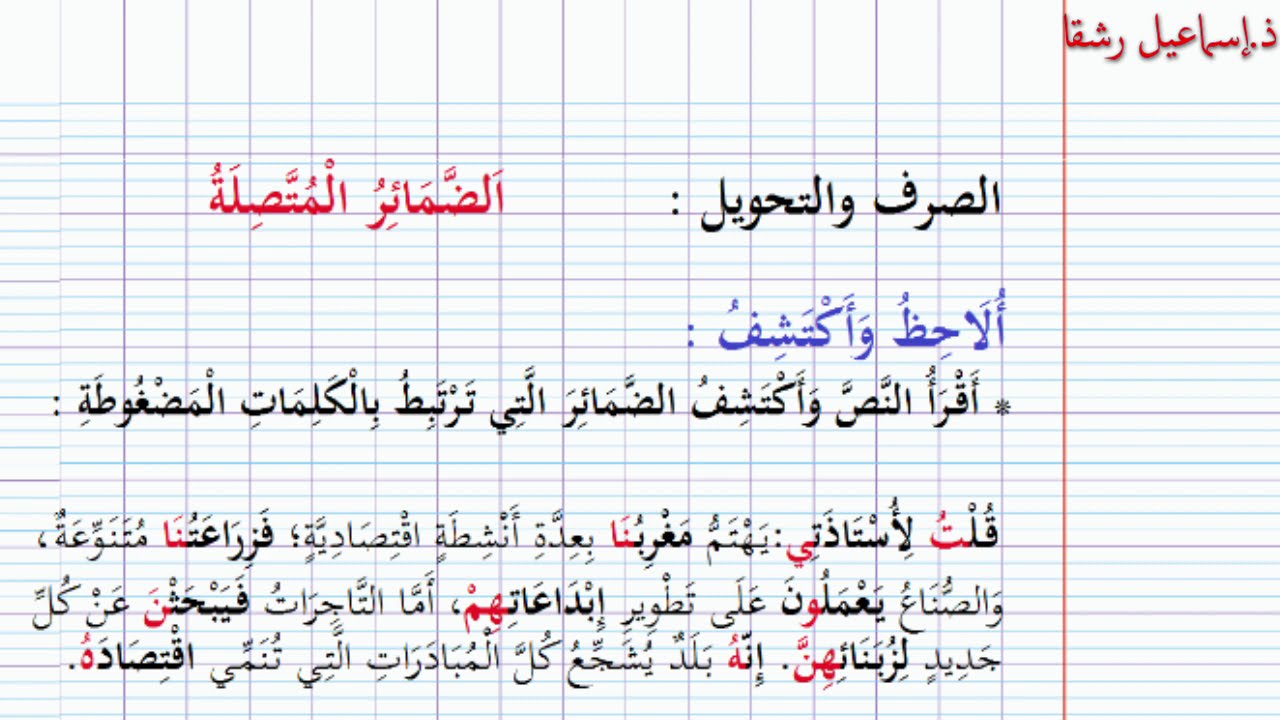 ذ.إسماعيل رشقا
الصرف والتحويل : اَلضَّمَائِرُ الْمُتَّصِلَةُ
أُلَاحِظُ وَأَكْتَشِفُ :
* أَقْرَأُ النَّصَّ وَأَكْتَشِفُ الضَّمَائِرَ الَّتِي تَرْتَبِطُ بِالْكَلِمَاتِ الْمَضْغُوطَةِ :
قُلْتُ لِأُسْتَاذَتِي:يَهْتَمُّ مَغْرِبُنَا بِعِدَّةِ أَنْشِطَةٍ اقْتِصَادِيَّةٍ؛ فَزِرَاعَتُنَا مُتَنَوِّعَةٌ،
وَالصُّنَاعُ يَعْمَلُونَ عَلَى تَطْوِيرِ إِبْدَاعَاتِهِمْ، أَمَّا التَّاجِرَاتُ فَيَبْحَثْنَ عَنْ كُلِّ
جَدِيدٍ لِزُبَنَائِهِنَّ. إِنّهُ بَلَدٌ يُشَجِّعُ كُلَّ الْمُبَادَرَاتِ الَّتِي تُنَمِّي اقْتِصَادَهُ.